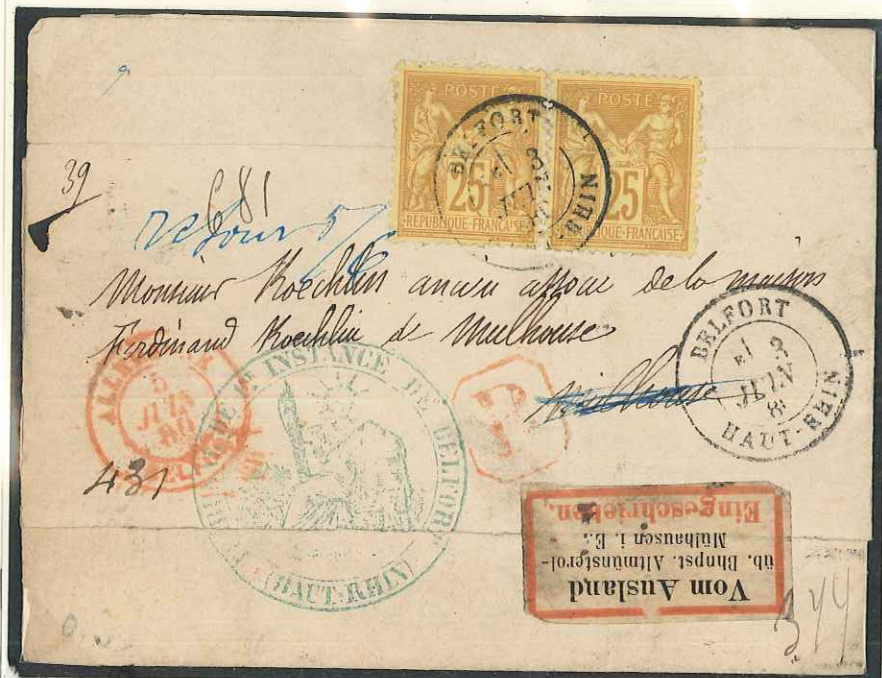 POSTE
25
REPUBLIQUE FRANÇAISE
POSTE
25
REPUBLIQUE FRANÇAISE
BELFORT
3
JUIN
RHIN
39
681
retour 5/6
Monsieur Koechlin ancien associé de la maison
Ferdinand Koechlin de Mulhouse
Mulhouse
BELFORT
3
JUIN
8
HAUT-RHIN
JUIN
80
R
DE 1RE INSTANCE DE BELFORT
(HAUT-RHIN)
431
Vom Ausland
üb. Bhnpst. Altmünsterol-
Mülhausen i. E.
Eingeschrieben.
344